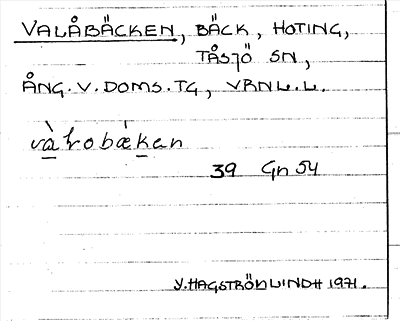 VALÅBÄCKEN, BÄCK, HOTING,
TÅSJÖ SN,
ÅNG. V. DOMS. TG, VBNL.L.
39 Gn 54
Y. HAGSTRÖMLINDH 1971.